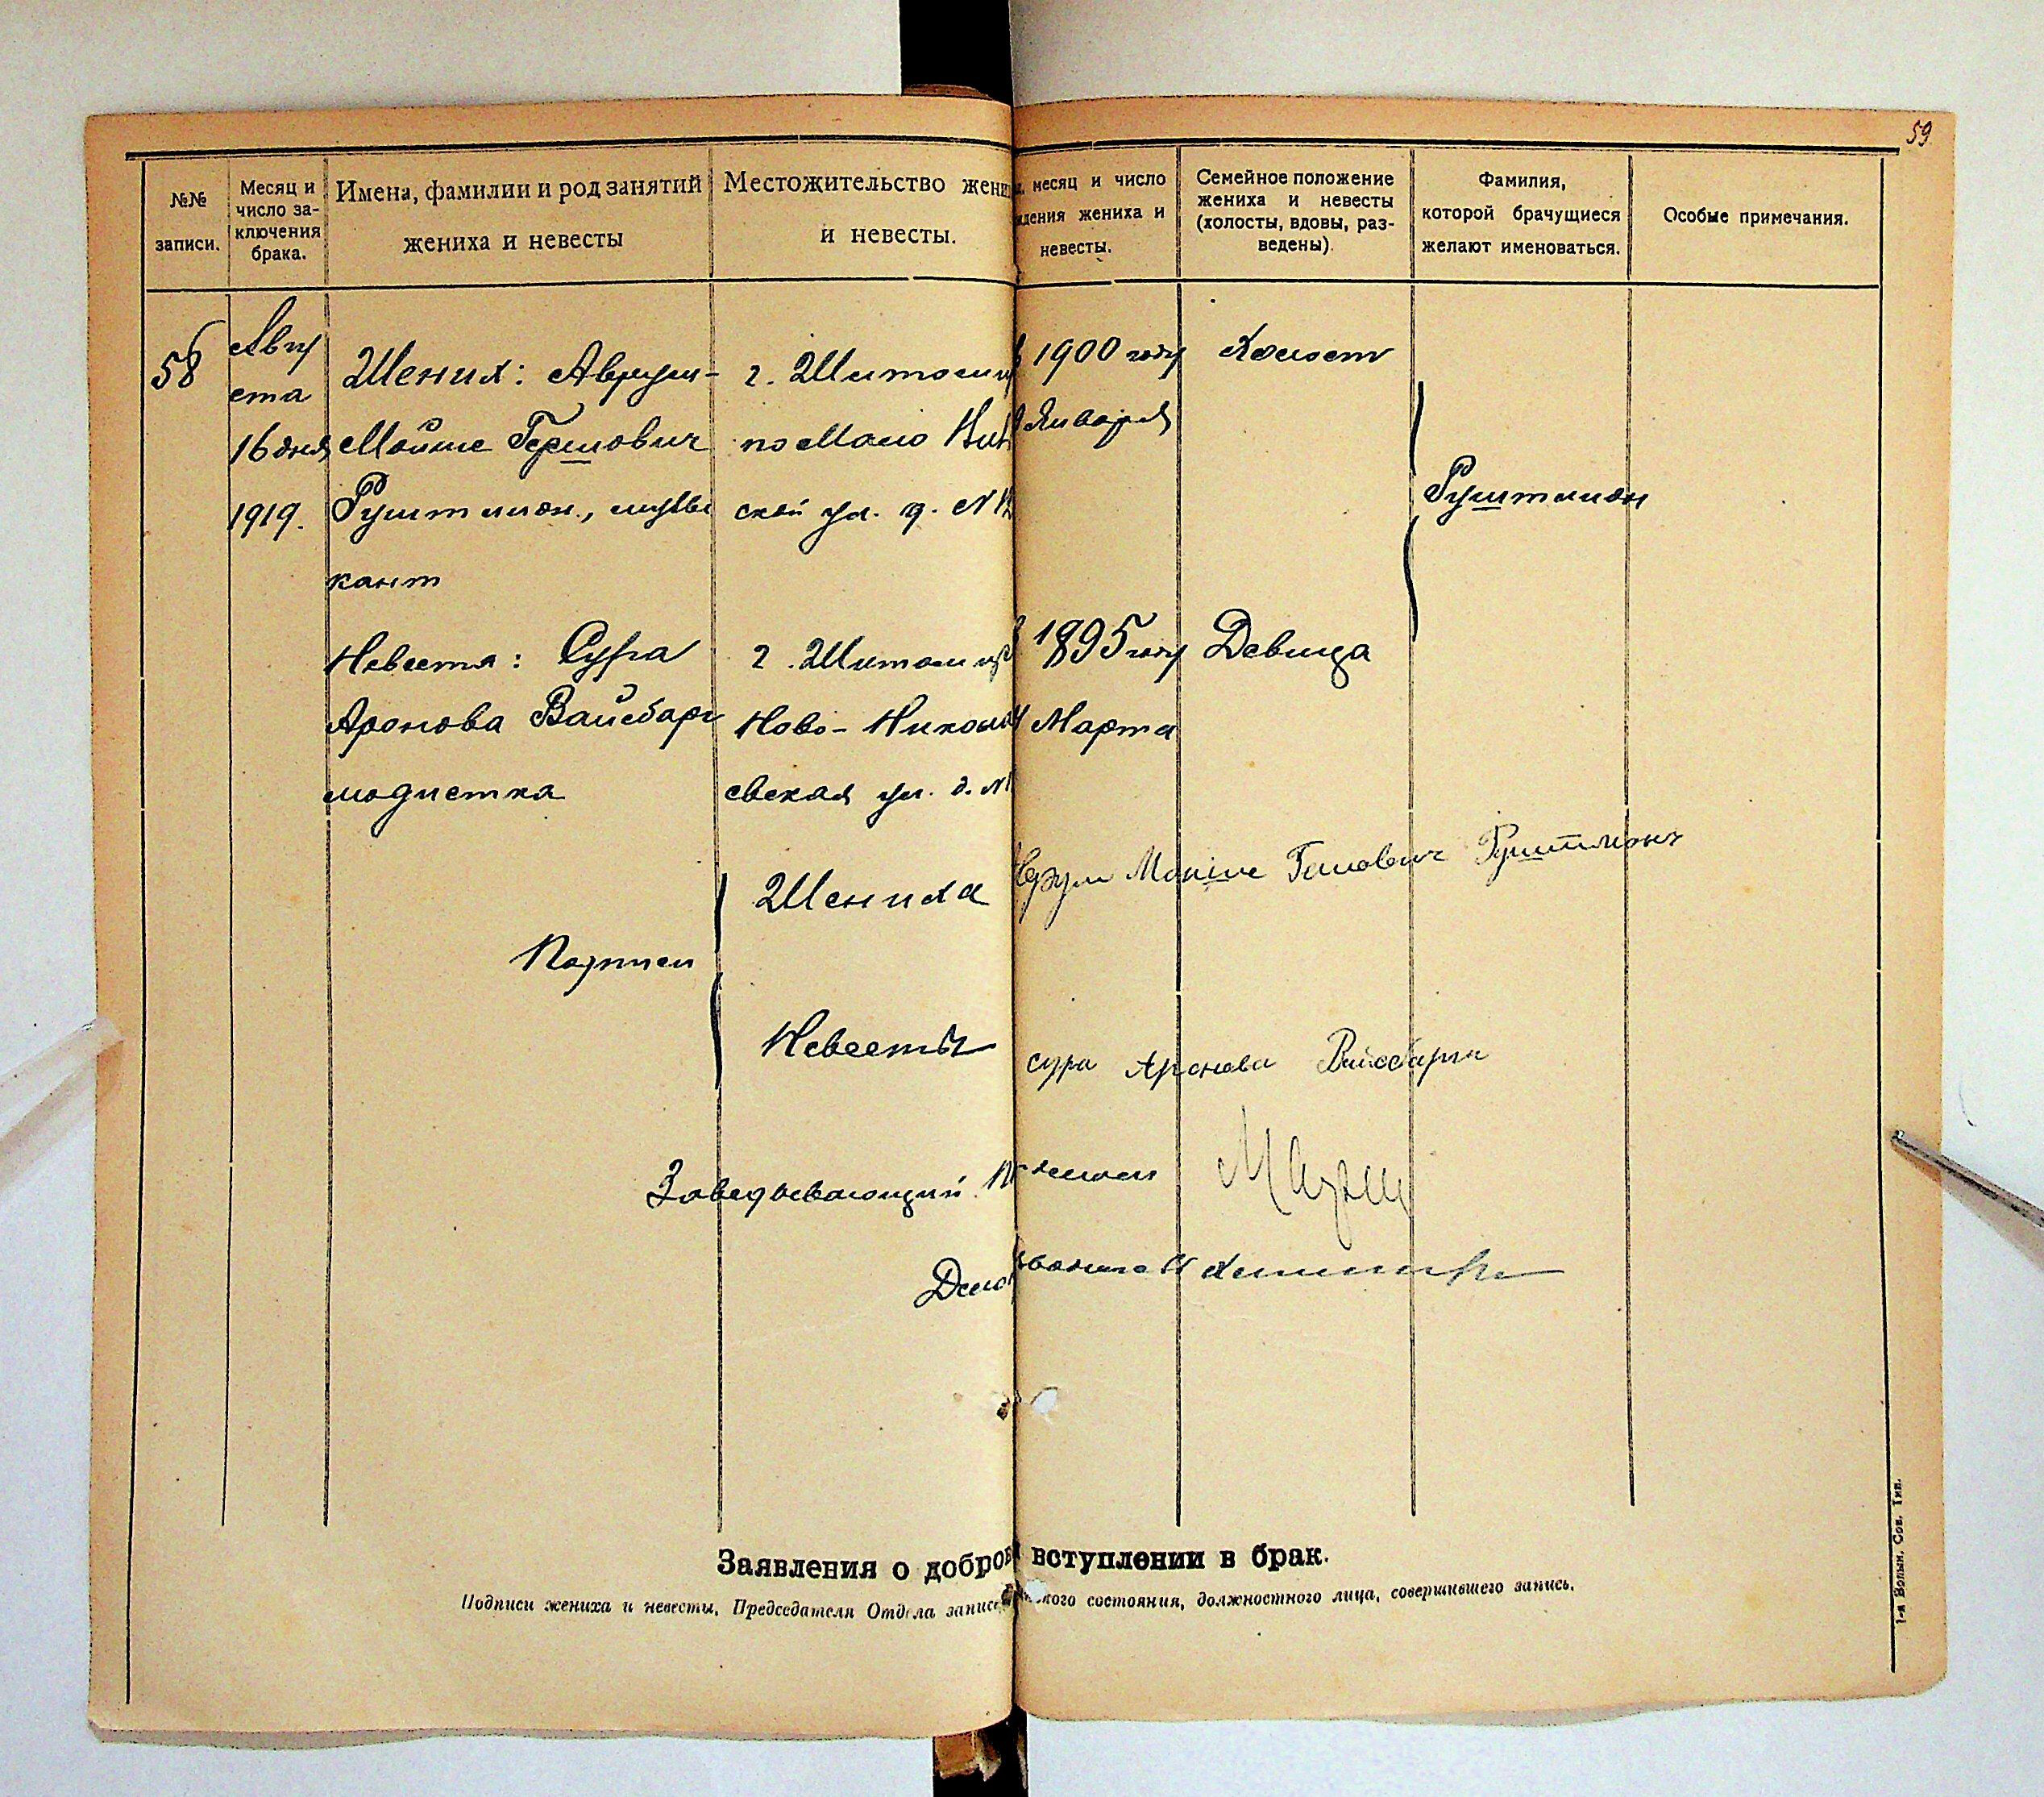 59
№№ записи.
Месяц и число заключения брака.
Имена, фамилии и род занятий жениха и невесты
Местожительство жени
и невесты.
месяц и число
ждения жениха и
невесты.
Семейное положение
жениха и невесты
(холосты, вдовы, раз-
ведены).
Фамилия,
которой брачущиеся
желают именоваться.
Особые примечания.
58
Авгу
ста
16 дня
1919.
Жених: Аврум-
Мойше Гершович
Руштмион., музы
кант
г. Житомир
по Мало
ской ул. д. №
в 1900 году
Января
Холост
Руштмион
Невеста: Сура
Аронова Вайсбарг
модистка
г. Житомир
Ново-Никола
евская ул. д. №
в 1895 году
Марта
Девица
Подписи
Жениха
Аврум Мойше Руштмион
Невесты
сура Аронова Вайсбарг
Заведывающий
Дело
Заявления о добров вступлении в брак.
Подписи жениха и невесты, Председателя Отдела записи нского состояния, должностного лица, совершившего запись.
1-я Волын. Сов. Тип.